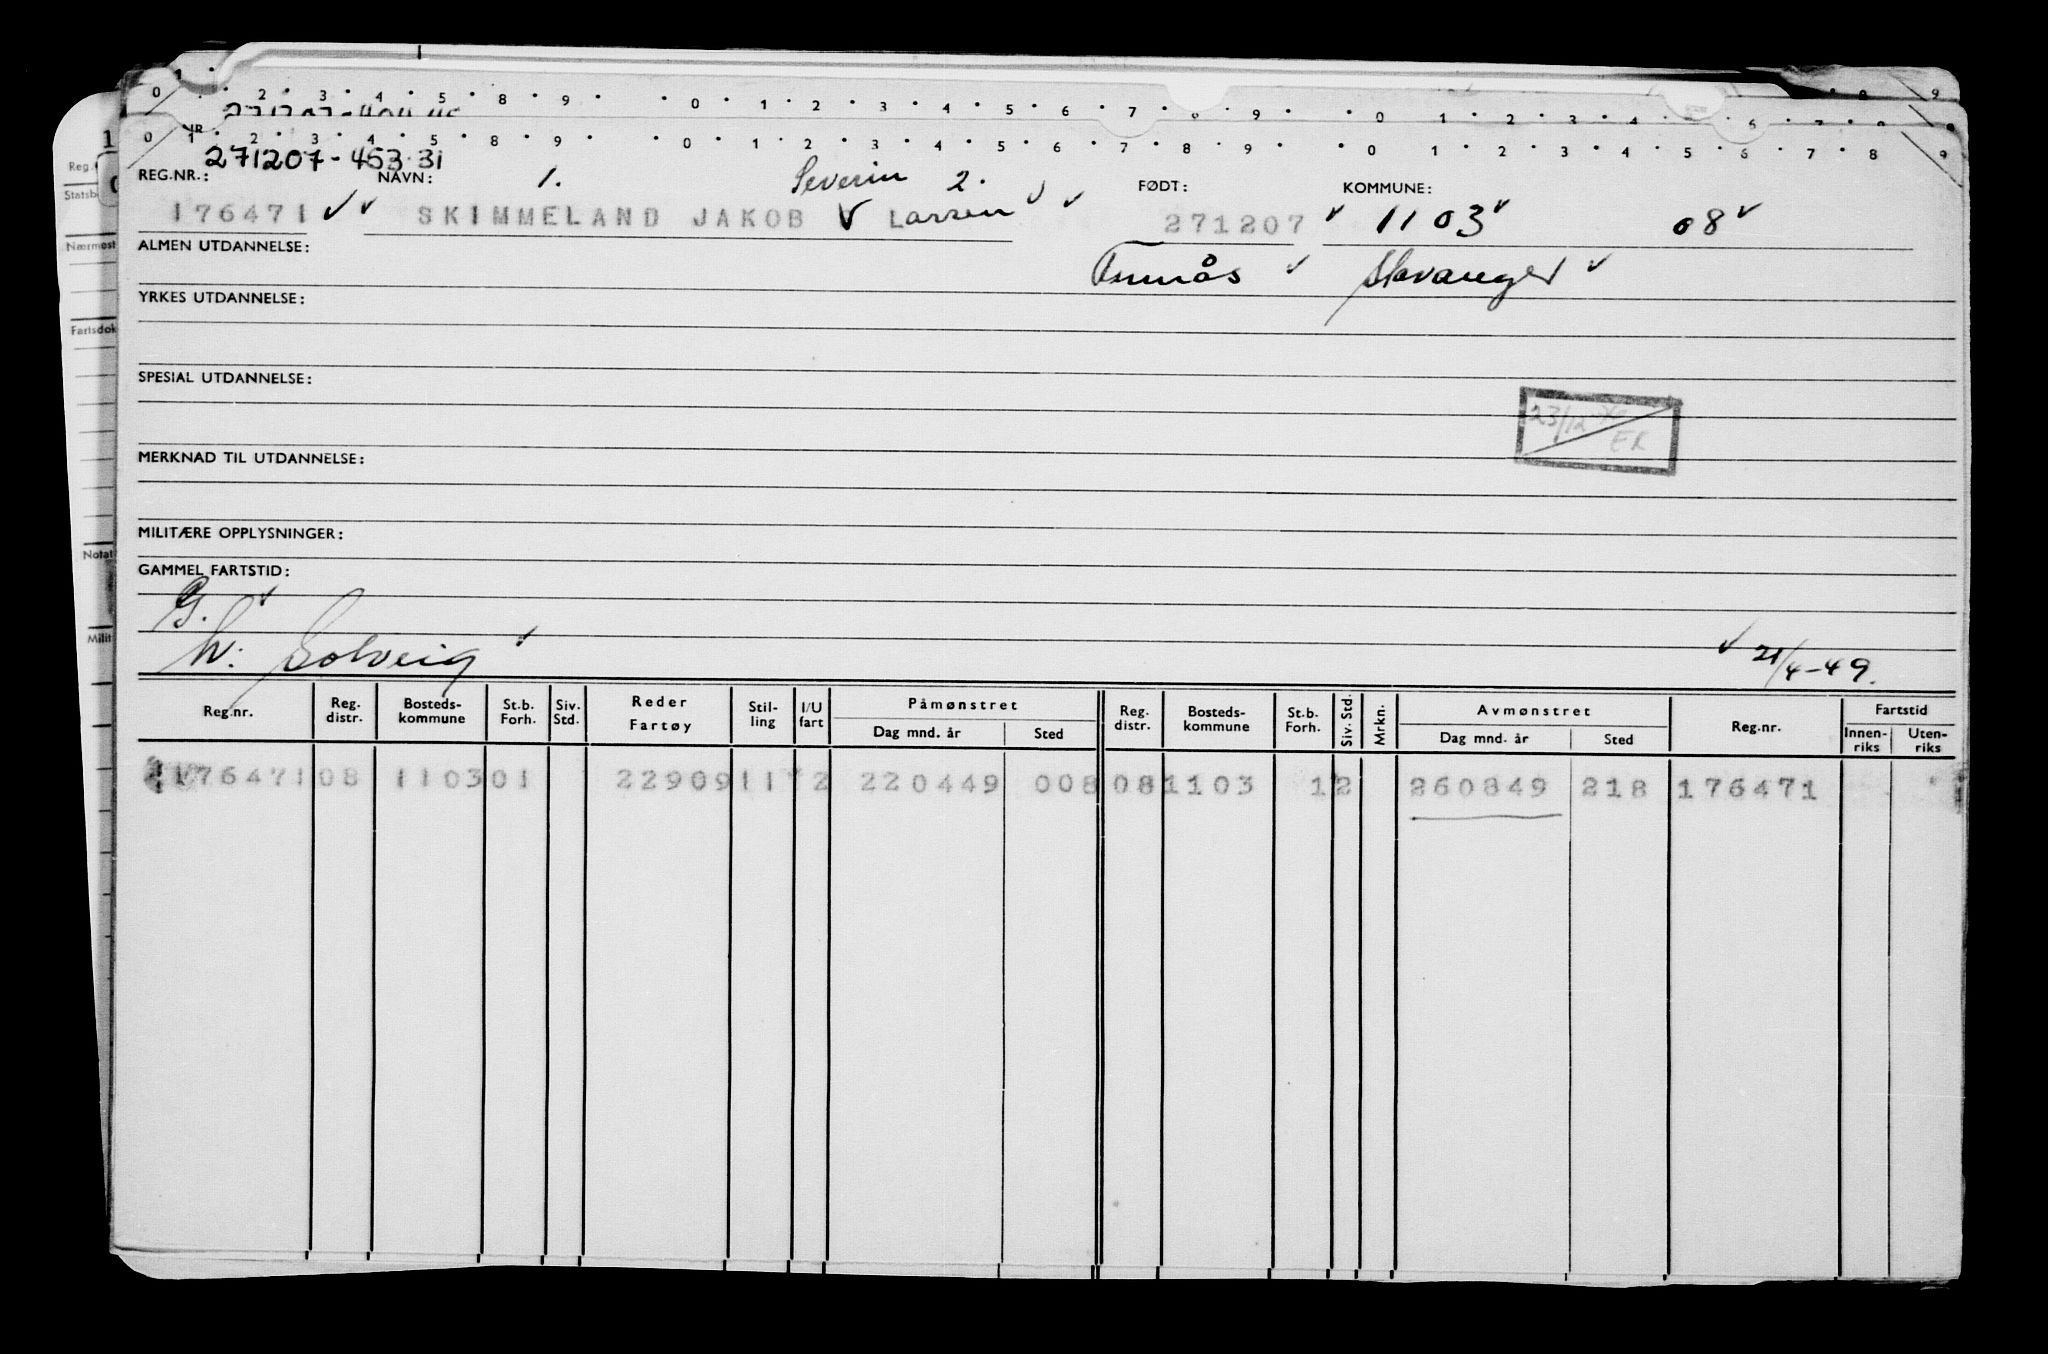 0 2 3 4 5 8 9 0 1 2 3 4 5 6 7 8 9 0 1 2 3 4 5 6 7 8 9
271207-404
0 1 2 3 4 5 8 9 0 1 2 3 4 5 6 7 8 9 0 1 2 3 4 5 6 7 8 9
271207-453 31
REG.NR.: NAVN: 1. Severin 2. FØDT: KOMMUNE:
176471 SKIMMELAND JAKOB V Larsen 271207 1103 08
ALMEN UTDANNELSE: Stavanger
YRKES UTDANNELSE:
SPESIAL UTDANNELSE:
23/12
ER
MERKNAD TIL UTDANNELSE:
MILITÆRE OPPLYSNINGER:
GAMMEL FARTSTID:
G.
h: Solveig 21/4-49.
Reg.nr. Reg. distr. Bosteds-kommune St.b. Forh. Siv. Std. Reder Fartøy Stil-ling I/U fart Påmønstret Dag mnd. år Sted Reg. distr. Bosteds-kommune St.b. Forh. Siv. Std. Mrkn. Avmønstret Dag mnd. år Sted Reg.nr. Fartstid Innen-riks Uten-riks
176471 08 1103 01 22909 11 2 220449 008 08 1103 12 260849 218 176471
Reg.
Statsb
Nærmest
Fartsdok
Notat
Milit